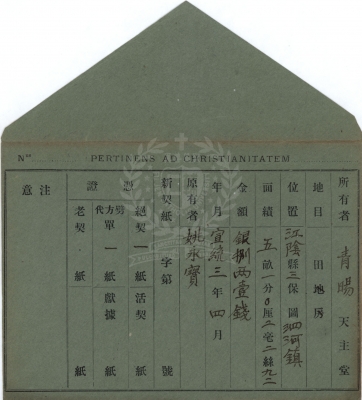 Nº
PERTINENS AD CHRISTIANITATEM
所有者 青暘 天主堂
地目 田地房
位置 江陰縣三保 圖泗河鎮
面積 五畝一分0厘二毫二絲九二
金額 銀捌兩壹錢
年月 宣統三年四月
原有者 姚永寶
新契紙 字第 號
證 憑
絕契一紙 活契 紙
方單一紙 獻據 紙
代 勞
老契 紙
注意